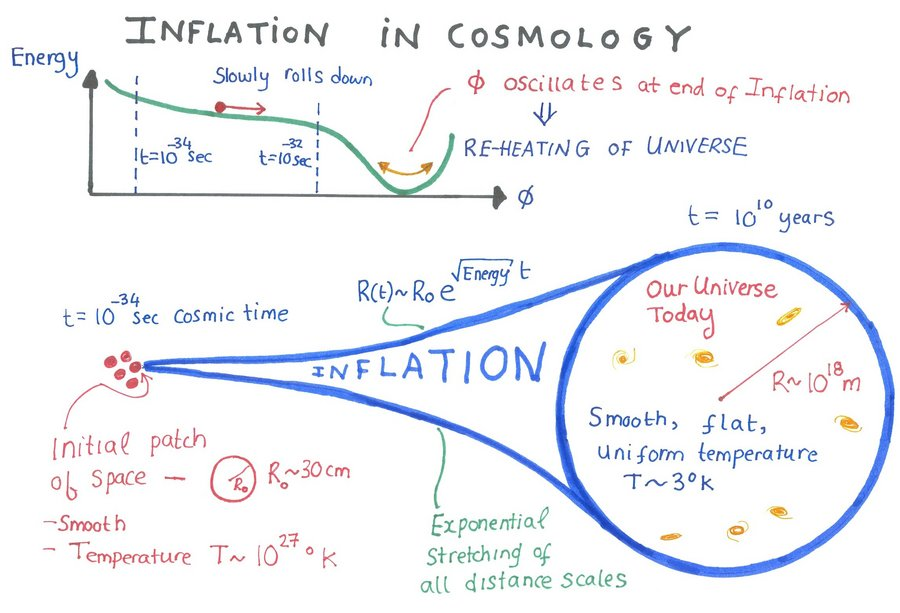 INFLATION IN COSMOLOGY
Energy
Slowly rolls down
ϕ oscillates at end of Inflation
⇓
RE-HEATING OF UNIVERSE
t=10^-34 sec
t=10^-32 sec
ϕ
t = 10^10 years
R(t)~R₀ e^√Energy t
t = 10^-34 sec cosmic time
INFLATION
Our Universe
Today
R~10^18 m
Smooth, flat,
uniform temperature
T~3°K
Initial patch
of space —
R₀
R₀~30cm
-Smooth
- Temperature T~10^27 °K
Exponential
Stretching of
all distance scales